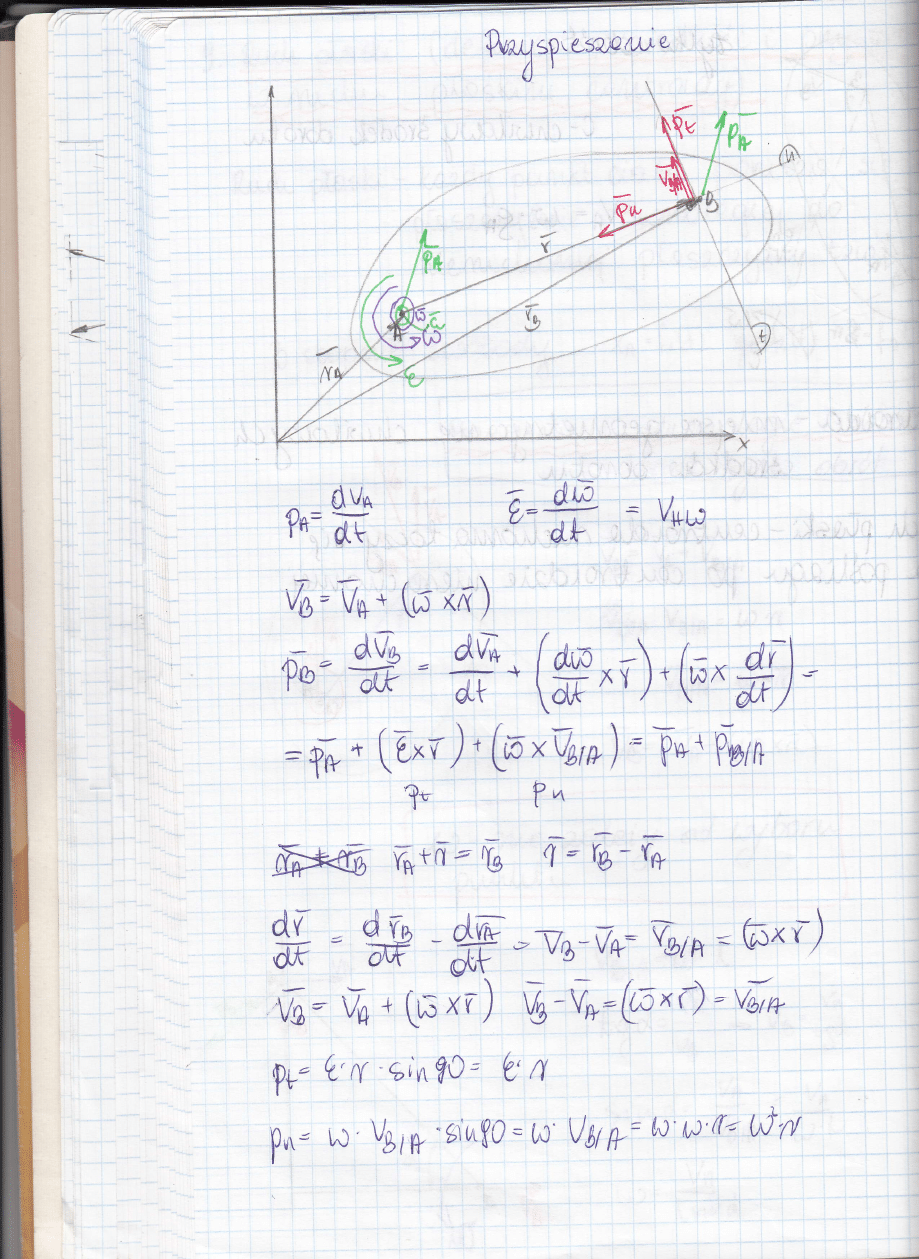 Przyspieszenie
p̄t
p̄A
n
v̄B/A
B
p̄n
r̄
p̄A
ω̄
ε̄
r̄B
A
ω
t
r̄A
ε
x
pA = dvA/dt ε̄ = dω̄/dt = VHω
V̄B = V̄A + (ω̄ × r̄)
p̄B = dV̄B/dt = dV̄A/dt + (dω̄/dt × r̄) + (ω̄ × dr̄/dt) =
= p̄A + (ε̄ × r̄) + (ω̄ × V̄B/A) = p̄A + p̄B/A
pt pn
r̄A + r̄B r̄A + r̄ = r̄B r̄ = r̄B - r̄A
dr̄/dt = dr̄B/dt - dr̄A/dt = V̄B - V̄A = V̄B/A = (ω̄ × r̄)
V̄B = V̄A + (ω̄ × r̄) V̄B - V̄A = (ω̄ × r̄) = V̄B/A
pt = ε · r · sin90 = ε · r
pn = ω · VB/A · sin90 = ω · VB/A = ω · ω · r = ω² · r